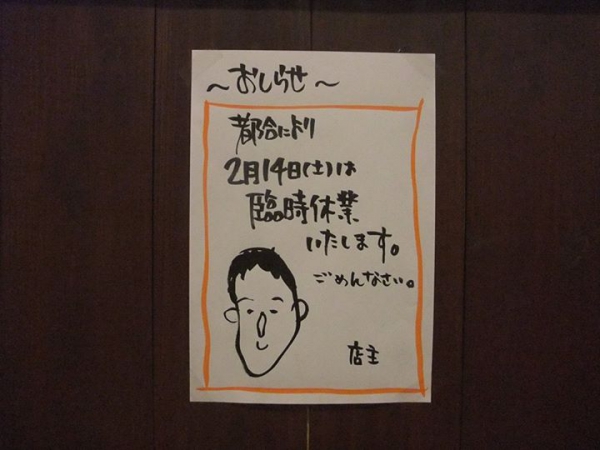 ～おしらせ～
都合により
2月14日(土)は
臨時休業
いたします。
ごめんなさい。
店主